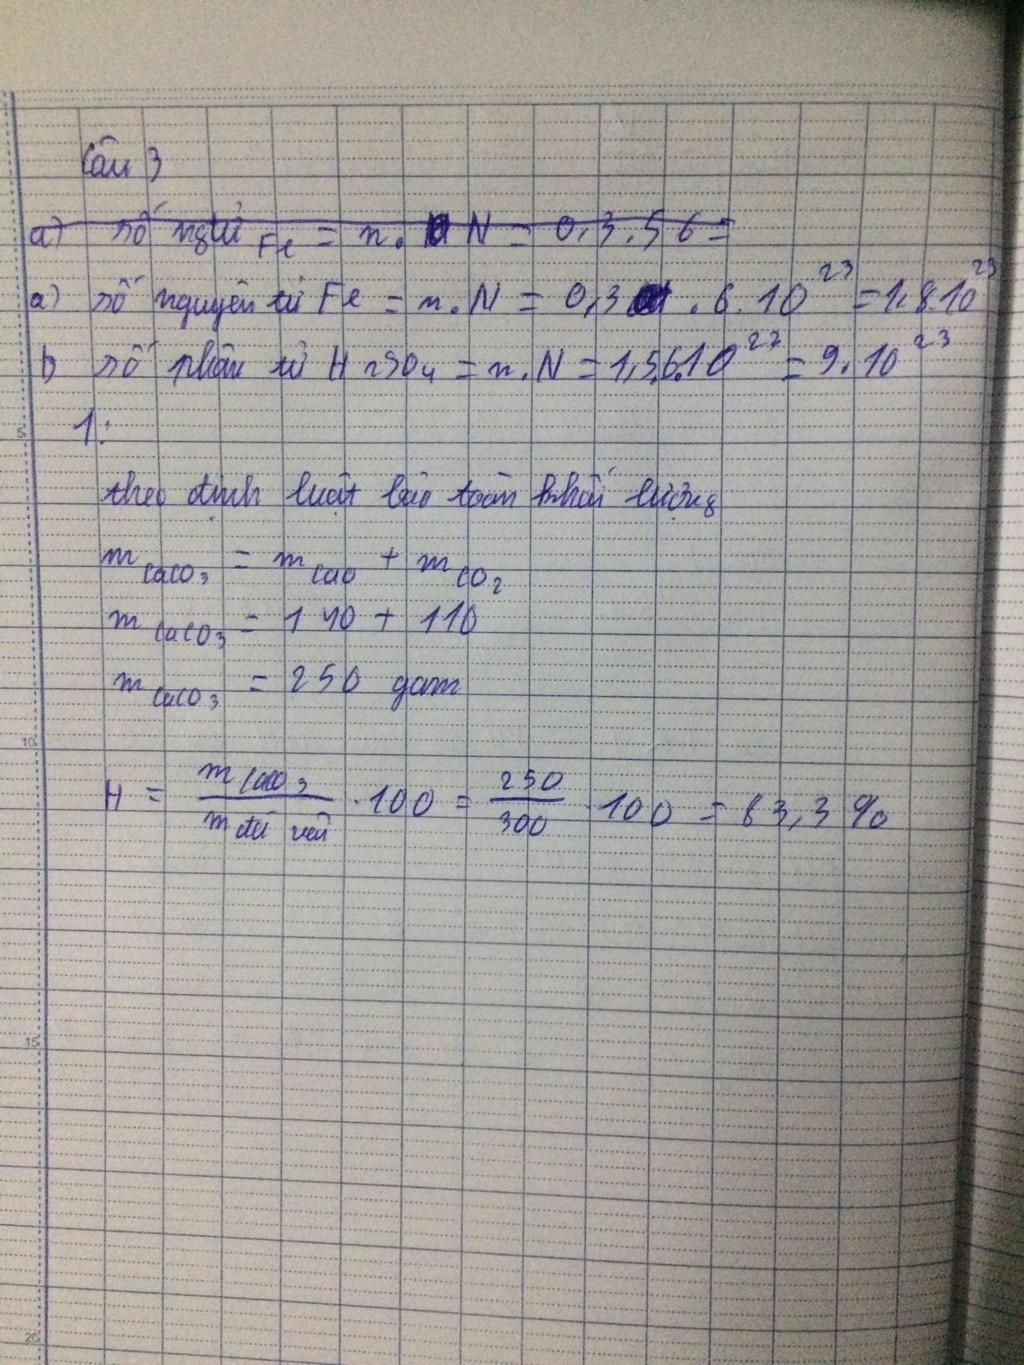 Câu 3
a) số ngtử Fe = n. N = 0,3.56 =
a) số nguyên tử Fe = n.N = 0,3 . 6.10²³ = 1,8.10²³
b) số phân tử H2SO4 = n.N = 1,5.6.10²³ = 9.10²³
1:
theo định luật bảo toàn khối lượng
m CaCO3 = m CaO + m CO2
m CaCO3 = 140 + 110
m CaCO3 = 250 gam
H = m CaCO3 / m đá vôi . 100 = 250 / 300 . 100 = 83,3 %
5
10
15
20